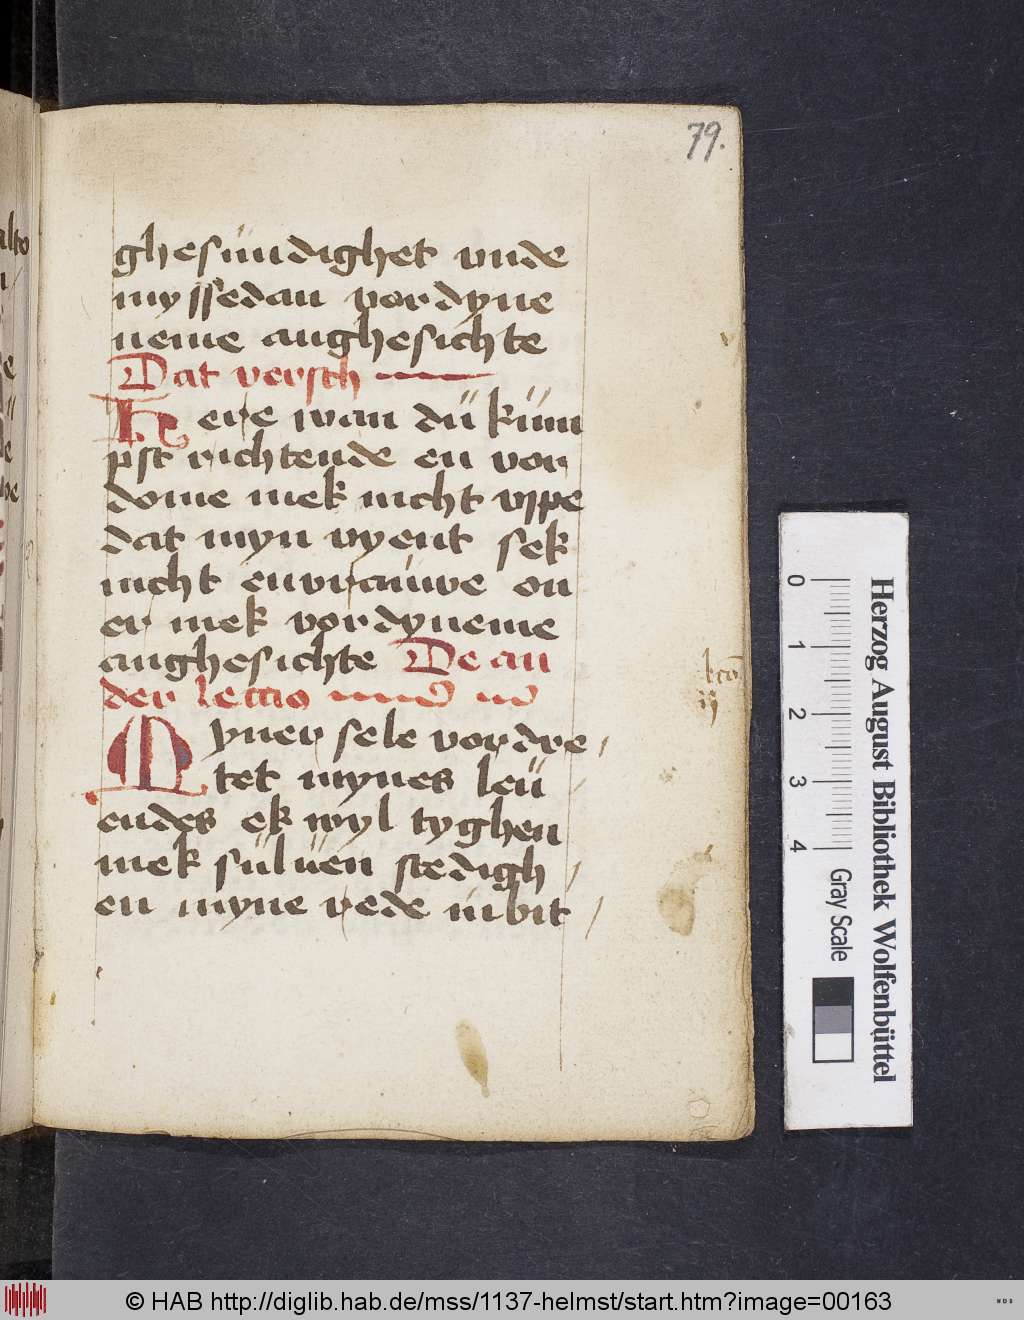 79.
ghesündighet vnde
myssedan vor dyne
neme anghesichte
Dat versch
Here wan dü küm
pst richtende en vor
dome mek nicht vppe
dat myn vyent sek
nicht envraüwe en
er mek vor dyneme
anghesichte De an
der lectio
Myner sele vordre
tet mynes leü
endes ek wyl tyghen
mek süluen stedigh
en myne rede in bit
Herzog August Bibliothek Wolfenbüttel
0 1 2 3 4 Gray Scale
© HAB http://diglib.hab.de/mss/1137-helmst/start.htm?image=00163